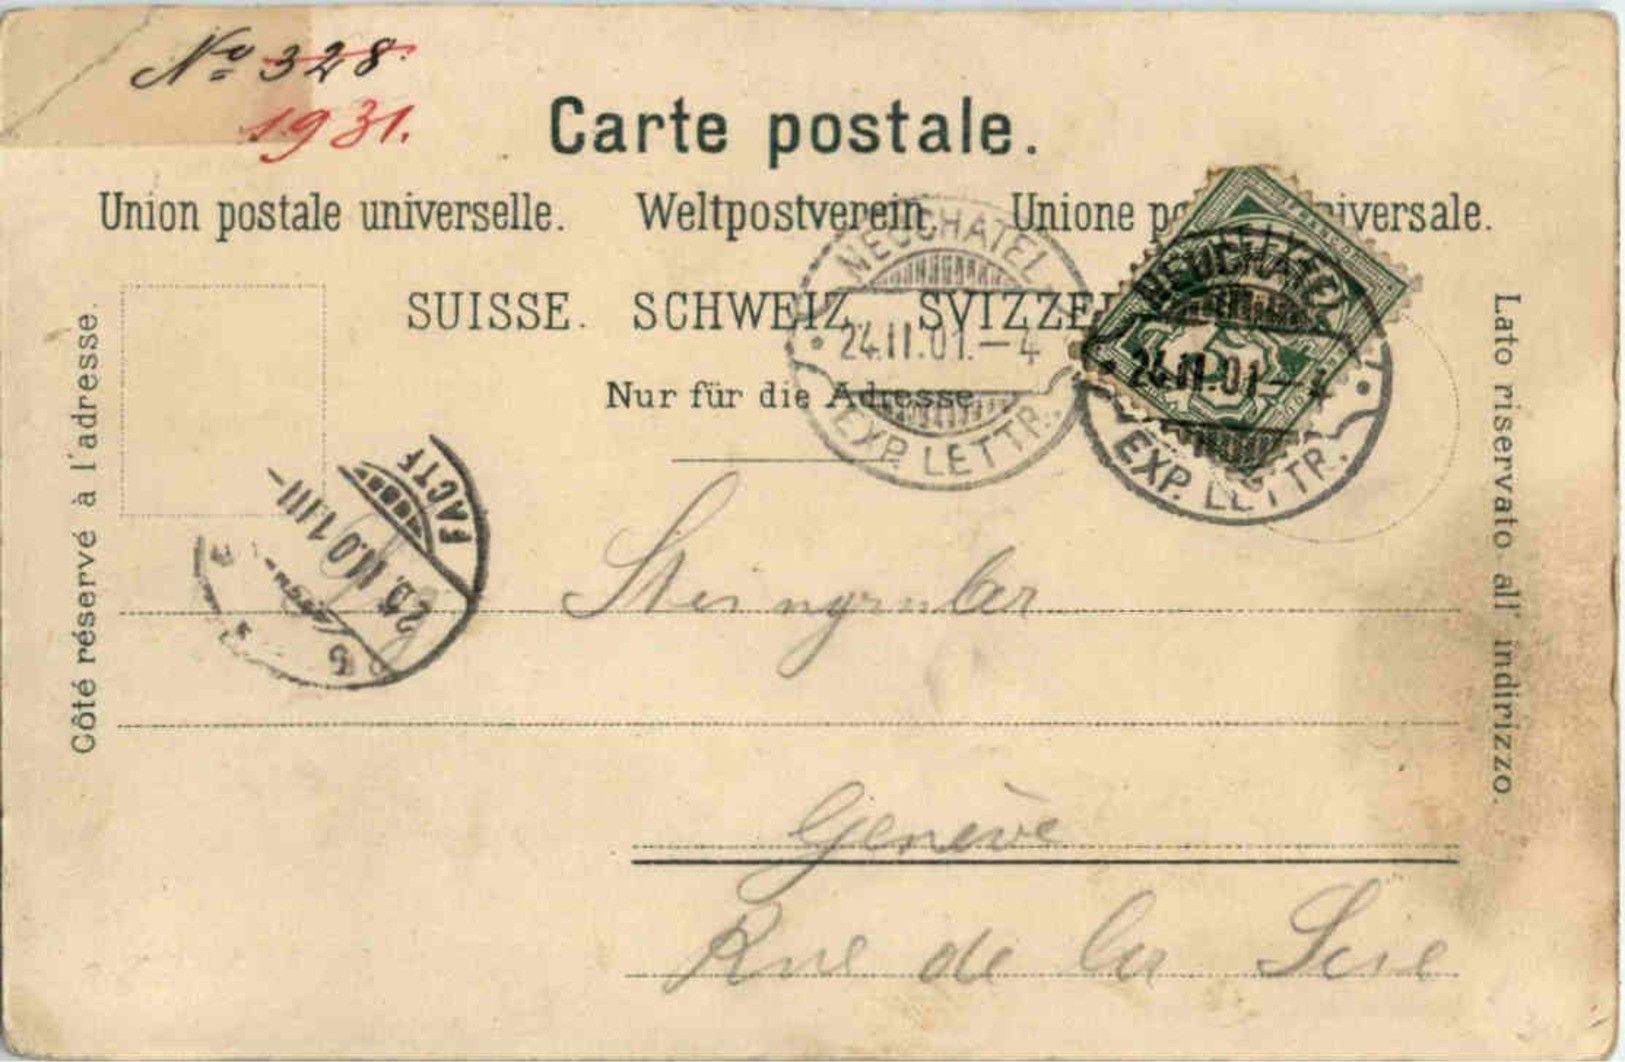 Nº 328.
1931.
Carte postale.
Union postale universelle. Weltpostverein. Unione universale.
SUISSE. SCHWEIZ. SVIZZE
Nur für die Adresse.
Côté réservé à l'adresse.
Lato riservato all' indirizzo.
NEUCHATEL
24.II.01.—4
EXP. LETTR.
NEUCHATEL
24.II.01—4
EXP. LETTR.
FRANCO
5
FACT
25.II.01.III—
Steingruber
Genève
Rue de la Scie